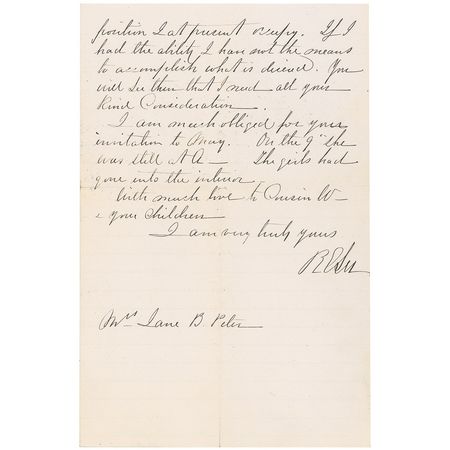 position I at present occupy. If I
had the ability I have not the means
to accomplish what is desired. You
will see then that I need all your
kind Consideration.
I am much obliged for your
invitation to Mary. On the 9th she
was still at A— The girls had
gone into the interior
With much love to Cousin W—
& your children
I am very truly yours
R E Lee
Mrs Jane B. Peter